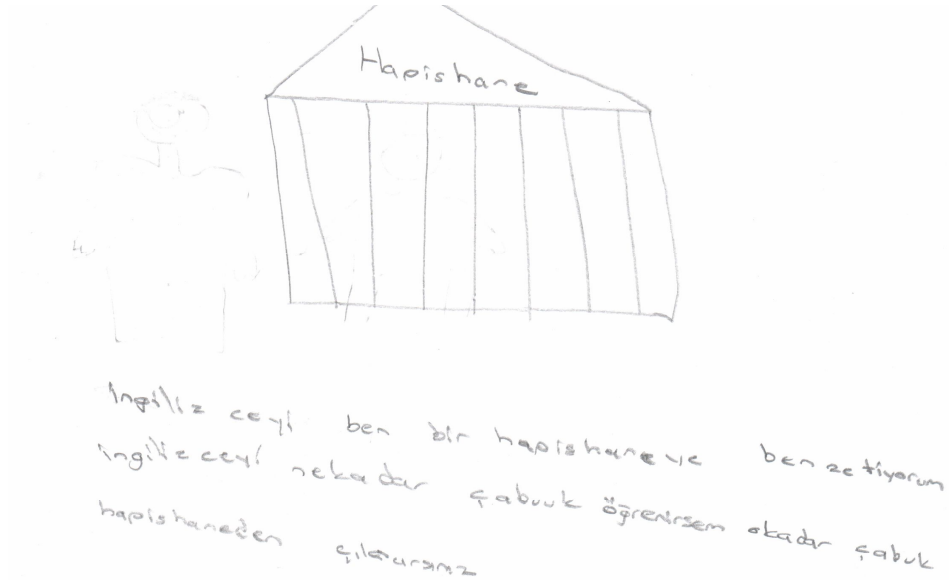 Hapishane
İngiliz ceyi ben bir hapishaneye benzetiyorum
ingilizceyi nekadar çabuuk öğrenirsem okadar çabuk
hapishaneden çıkarsınız